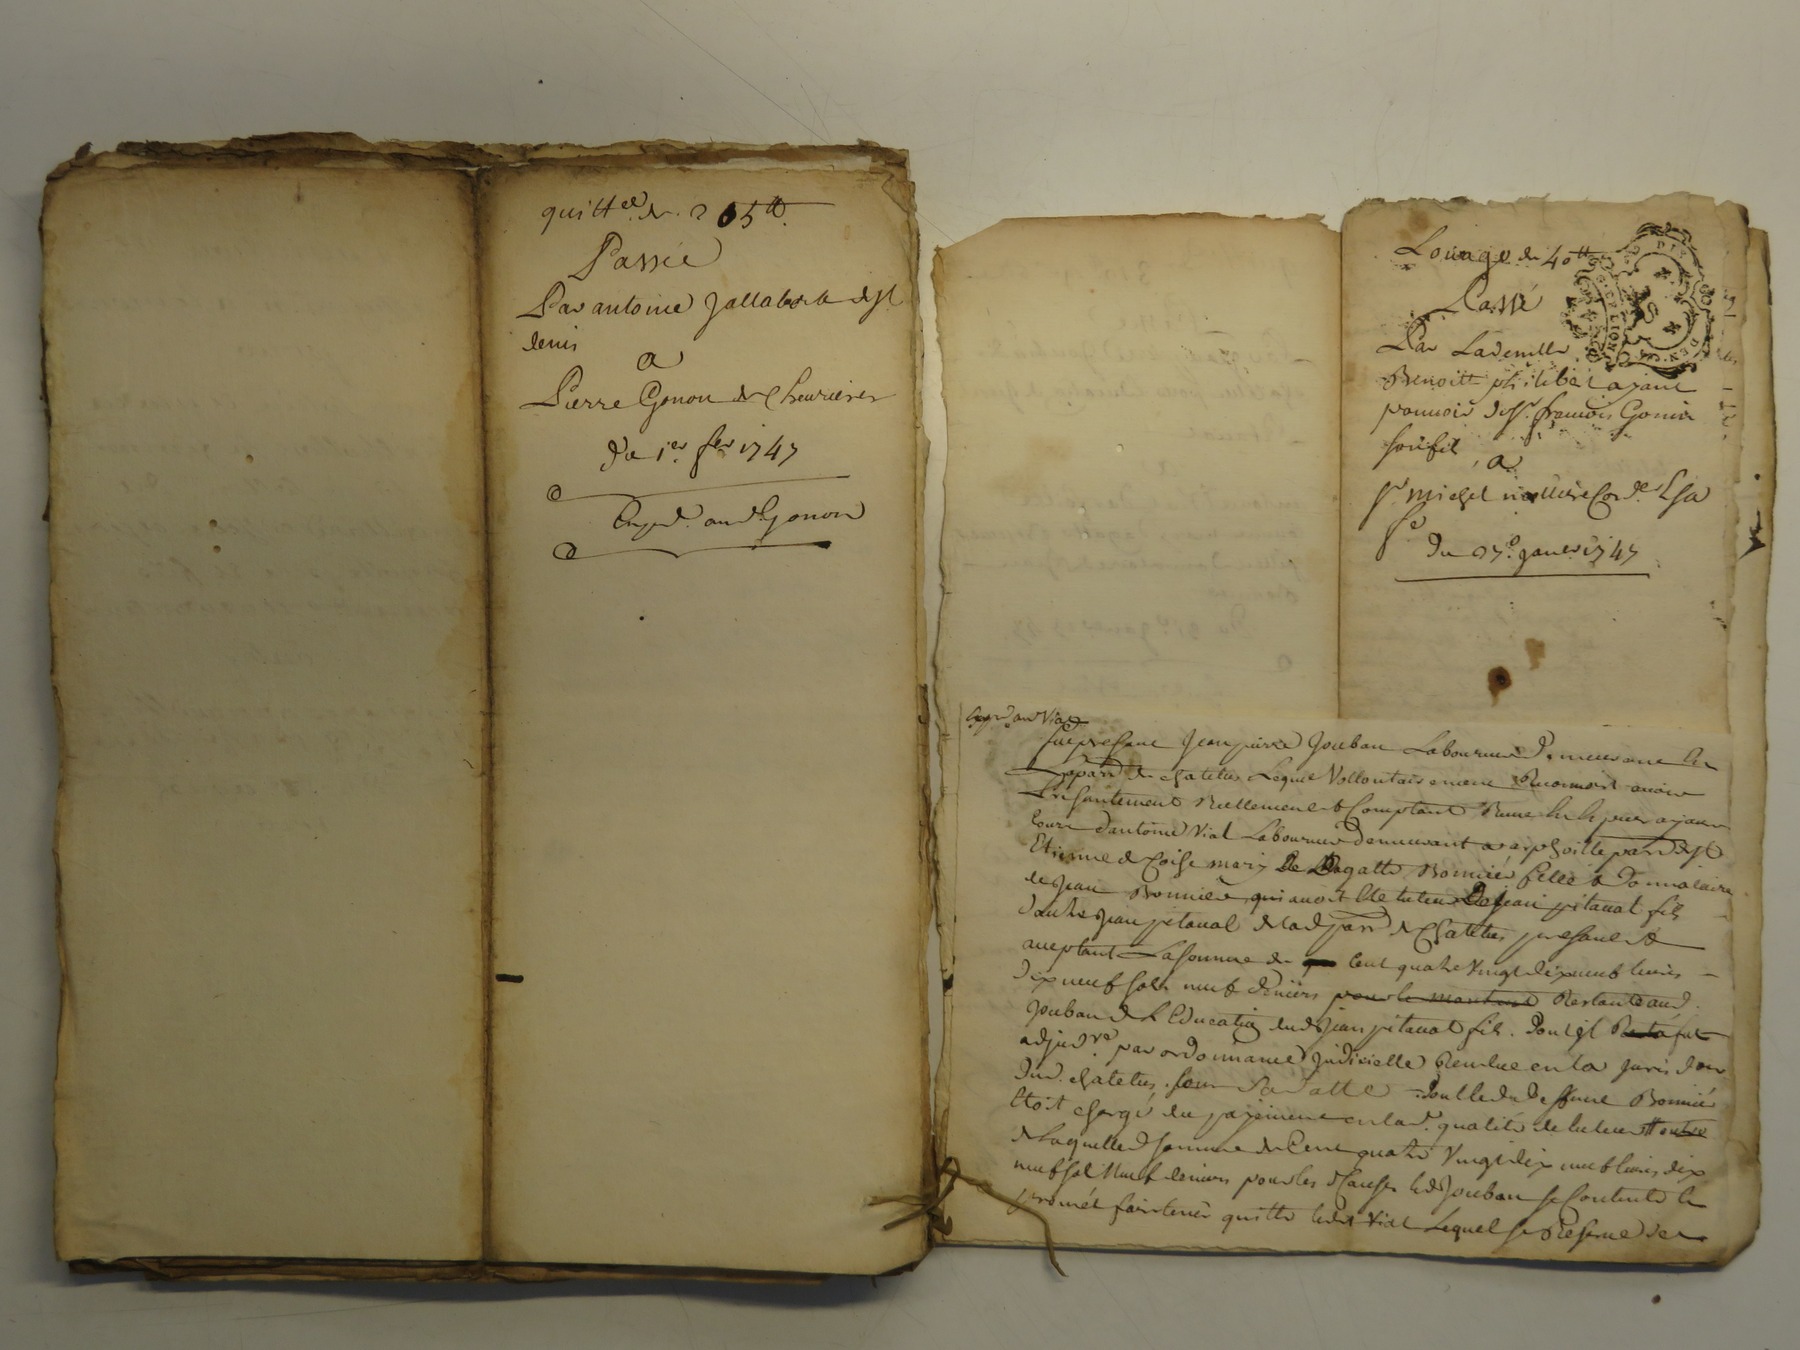 quitt.ce de 205 tt
Passée
Par antoine Jallabert de St
denis
a
Pierre Gonon de Chevrieres
du 1er fer 1747
Exp.d au d. Gonon
Louage de 40 tt
Passé
Par La demlle
Benoitte philibert ayant
pouvoir de Sr. francois Gonin
son fils
a
Sr michel
Sa
fe
du 27e janer 1747
Exp.d au d Vial
fut present Jean pierre Jouban Laboureur Demeurant en
La parr. de chatelus Lequel Vollontairement Reconnoit avoir
presentement Reellement & Comptant Receu
d'antoine Vial Laboureur demeurant a parr. de St
Etienne de Coise mary de Bonnier fille & Donnataire
de Jean Bonnier, qui avoit Ete tuteur De Jean pitaval fils
d'autre Jean pitaval de lad parr de Chatelus present &
aceptant La somme de Cent quatre Vingt dix neuf livres
dix neuf sols neuf deniers pour le montant Restante aud.
Jouban de L'Education dud Jean pitaval fils. Dont il fut
adjud.re par ordonnance Judicielle Rendue en la Juris don
dud. chatelus sous Sa datte Dont led deffunt Bonnier
Etoit chargé du payement en lad. qualité de tuteur
de Laquelle d somme de Cent quatre Vingt dix neuf livres dix
neuf sol Neuf deniers pour les d Causes led Jouban se Contente &
promet faire tenir quitte led Vial Lequel se Reserve de